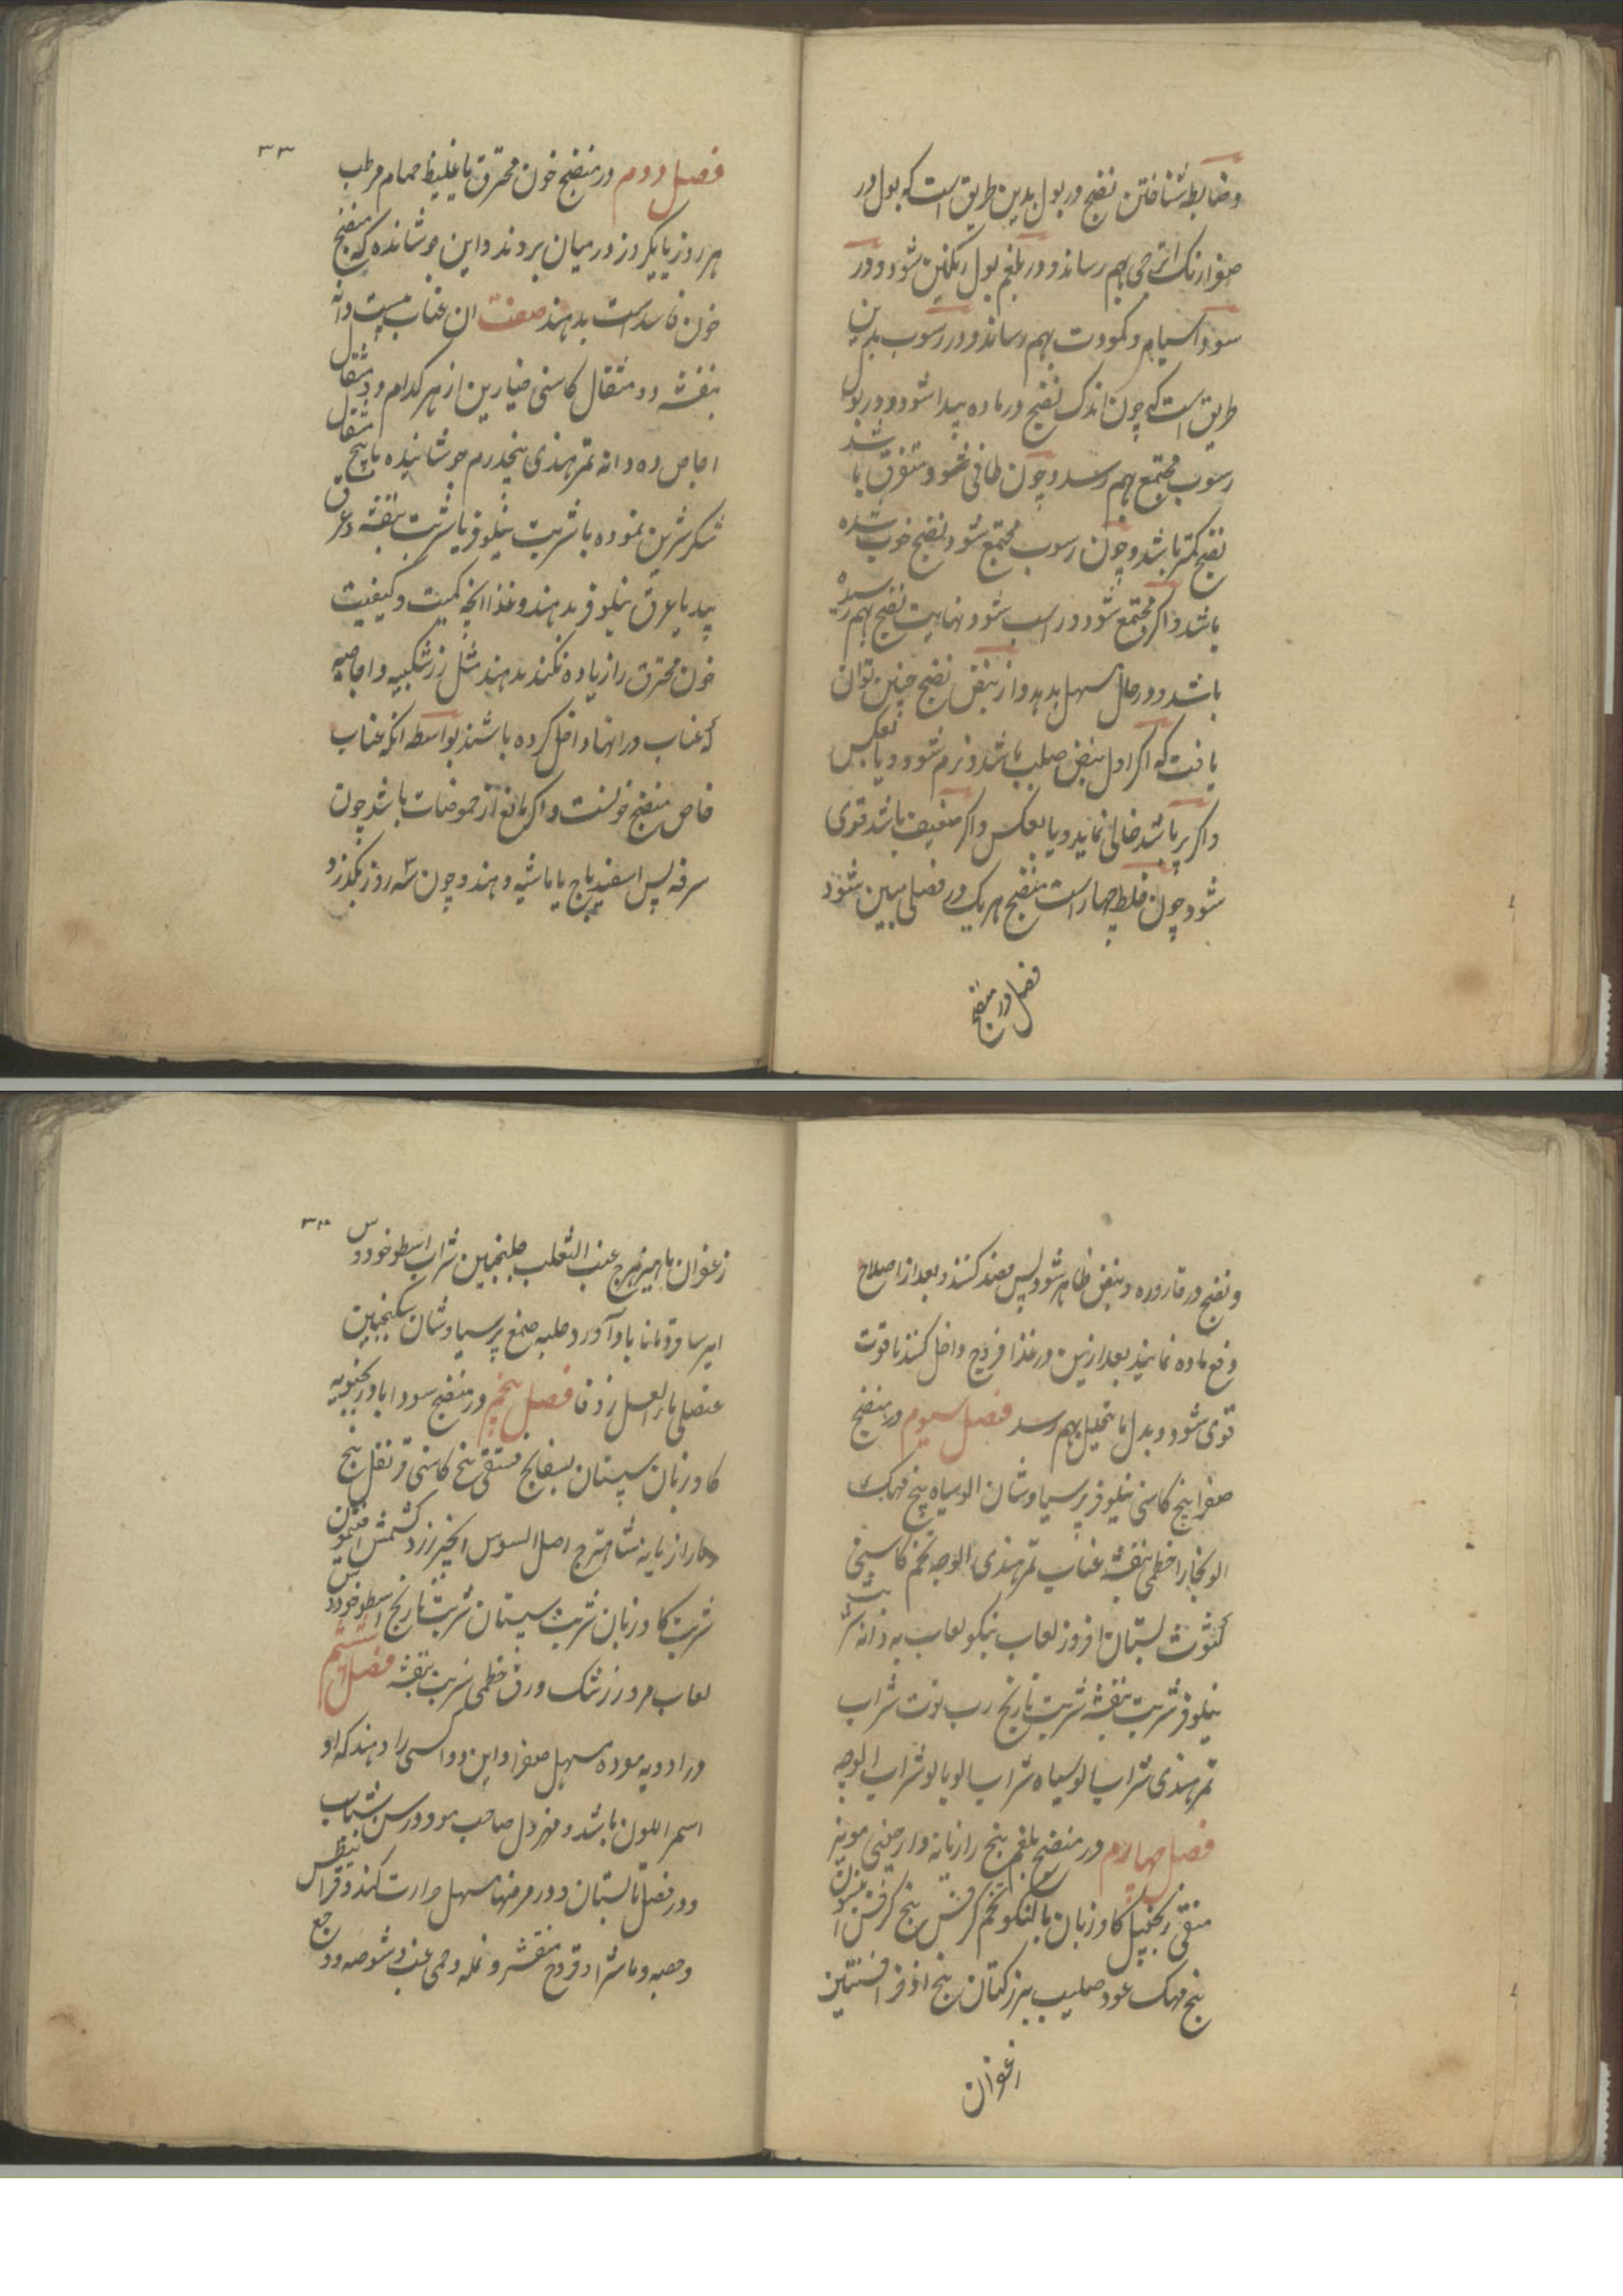 و ضابطه شناختن نضج در بول بدین طریق است که بول در
صفرا رنک اترجی بهم رساند و در بلغم بول رنکین شود و در
سودا سیاه و کمودت بهم رساند و در رسوب بدین
طریق است که چون اندک نضج در ماده پیدا شود و در بول
رسوب مجتمع بهم رسد و چون طافی شود متفرق باشد
نضج کمتر باشد و چون رسوب مجتمع شود نضج خوب شده
باشد و اکر مجتمع شود و راسب شود نهایت نضج بهم رسیده
باشد و در حال مسهل بدهد و از نبض نضج چنین توان
یافت که اکر اول نبض صلب باشد و نرم شود و یا بعکس
و اکر پر باشد خالی نماید و یا بعکس و اکر ضعیف باشد قوی
شود چون خلط چهار است منضج هر یک در فصلی مبین شود
فصل در منضج
۳۳
فصل دوم در منضج خون محترق یا غلیظ حمام مرطب
هر روز یا یکروز در میان بروند و این جوشانده که منضج
خون فاسد است بدهند صفت ان عناب بیست دانه
بنفشه دو مثقال کاسنی خیارین از هر کدام دو مثقال
اجاص ده دانه تمر هندی پنجدرم جوشانیده با پنج مثقال
شکر شرین نموده با شربت نیلوفر یا شربت بنفشه و عرق
بید یا عرق نیلوفر بدهند و غذا انچه کمیت و کیفیت
خون محترق را زیاده نکند بدهند مثل زرشکیه و اجاصیه
که عناب در انها داخل کرده باشند بواسطه انکه عناب
خاص منضج خونست و اکر مانع از حموضات باشد چون
سرفه پس اسفیدباج یا ماشیه دهند و چون سه روز بکذرد
و نضج در قاروره و نبض ظاهر شود پس فصد کنند و بعد از اصلاح
دفع ماده نمایند بعد ازین در غذا فروج داخل کنند تا قوت
قوی شود و بدل ما یتحلل بهم رسد فصل سیوم در منضج
صفرا بیخ کاسنی نیلوفر پرسیاوشان الو سیاه بیخ مهک
الو بخارا خطمی بنفشه عناب تمر هندی الوچه تخم کاسنی
کثوث بستان افروز لعاب نیکو لعاب به دانه شربت
نیلوفر شربت بنفشه شربت نارنج رب توت شراب
تمر هندی شراب الو سیاه شراب الوبالو شراب الوچه
فصل چهارم در منضج بلغم بیخ رازیانه دارصینی مویز
منقی زنجبیل کاوزبان بالنکو تخم کرفس بیخ کرفس انیسون
بیخ مهک عود صلیب بزر کتان بیخ اذخر افسنتین
زعفران
۳۴
زعفران ماهیزهرج عنب الثعلب جلنجبین شراب اسطوخودوس
ایرسا قردمانا باد آورد حلبه صمغ پرسیاوشان سکنجبین
عنصلی ماء العسل زوفا فصل پنجم در منضج سودا بادرنجبویه
کاوزبان سپستان بسفایج فستقی بیخ کاسنی قرنفل بیخ
رازیانه شاهترج اصل السوس انجیر زرد کشمش افتیمون
شربت کاوزبان شربت سپستان شربت نارنج اسطوخودوس
لعاب مرو زرشک ورق خطمی شربت بنفشه فصل ششم
در ادویه مفرده مسهل صفرا و این دوا کسی را دهند که او
اسمر اللون باشد و مهزول صاحب مو و در سن شباب
و در فصل تابستان و در مرضها مسهل حرارت کند و قرانیطس
و حصبه و ماشرا و قروح متقشر و نمله و حمی غب و شوصه و وجع